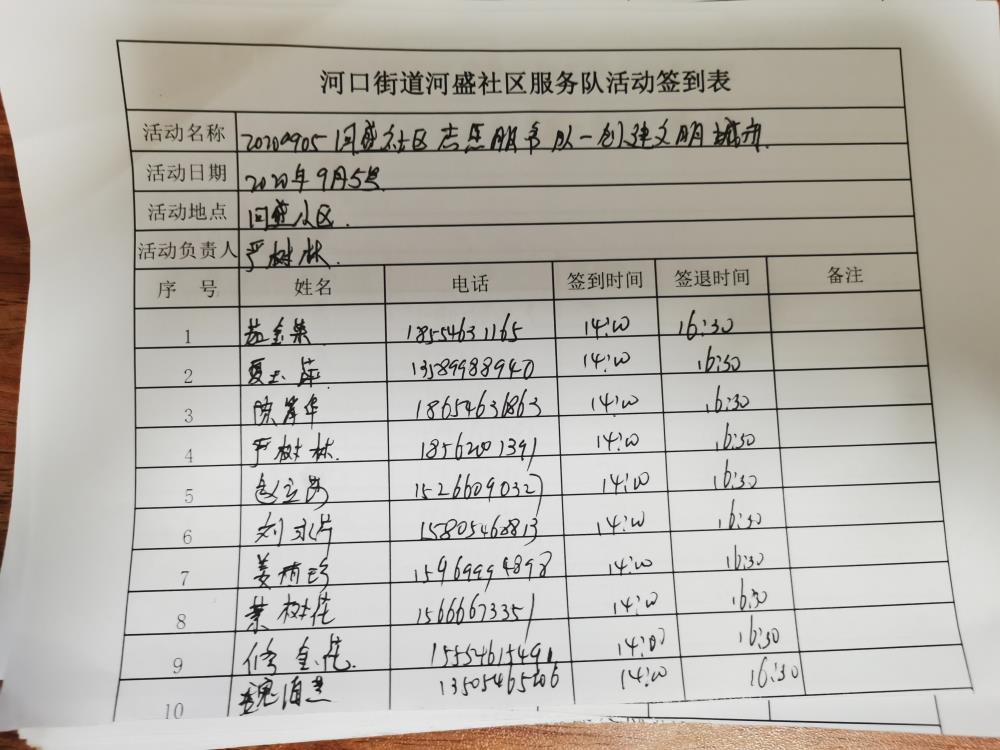 河口街道河盛社区服务队活动签到表
活动名称 20200905河盛社区志愿服务队-创建文明城市.
活动日期 2020年9月5号
活动地点 河盛社区.
活动负责人 严树林.
序 号 姓名 电话 签到时间 签退时间 备注
1 18554631165 14:00 16:30
2 13589988940 14:00 16:30
3 18654636863 14:00 16:30
4 严树林. 18562001391 14:00 16:30
5 15266090327 14:00 16:30
6 15805468813 14:00 16:30
7 姜桂珍 15969994898 14:00 16:30
8 15666673351 14:00 16:30
9 14:00 16:30
10 14:00 16:30